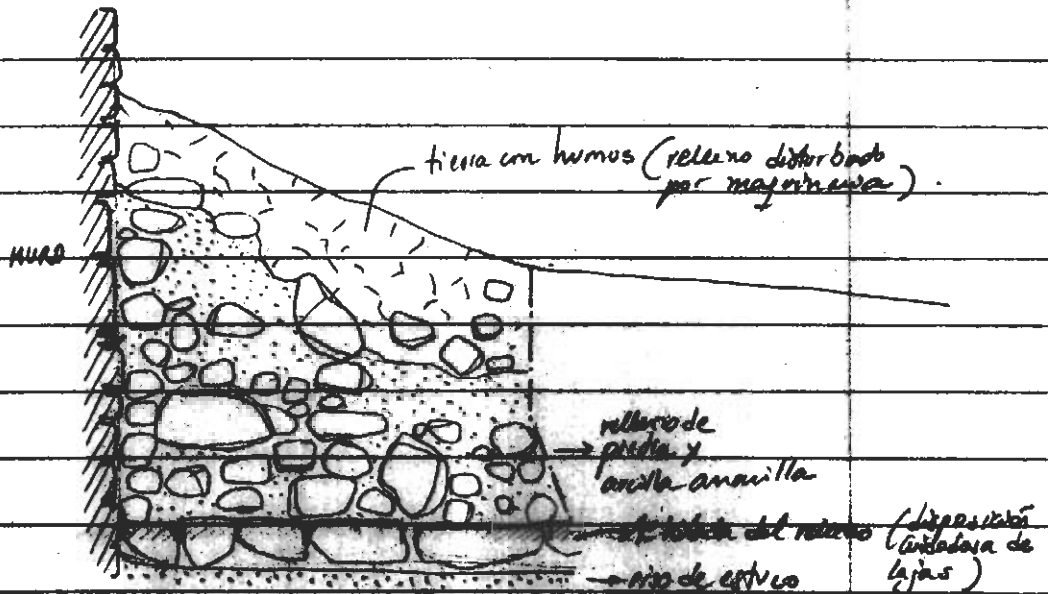 tierra con humus (relleno disturbado
por maquinaria).
MURO
relleno de
piedra y
arcilla amarilla
del relleno (disposición
cuidadosa de
lajas)
piso de estuco